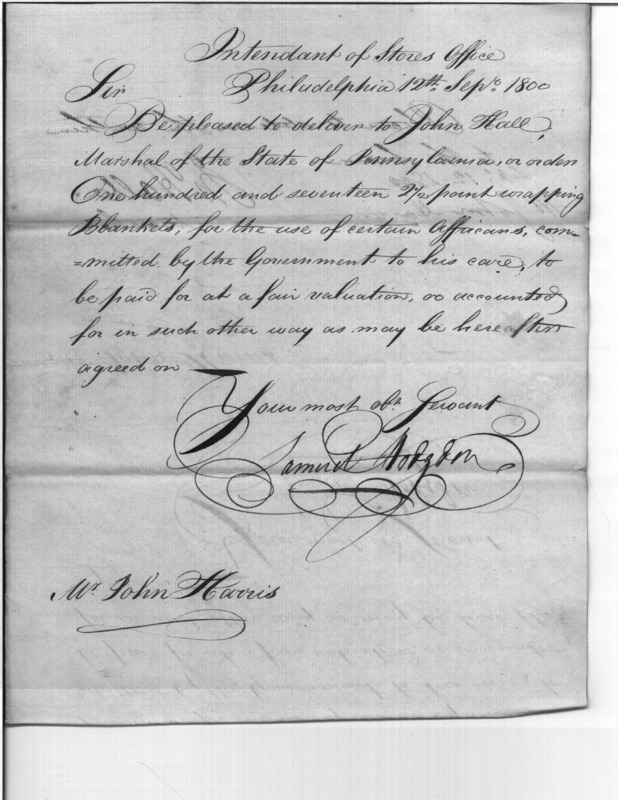 Intendant of Stores Office
Philadelphia 12th. Sepr. 1800
Sir
Be pleased to deliver to John Hall,
Marshal of the State of Pennsylvania, or order
One hundred and seventeen 2½ point wrapping
Blankets, for the use of certain Affricans, com=
=mitted by the Government to his care, to
be paid for at a fair valuation, or accounted
for in such other way as may be hereafter
agreed on
Your most obt. Servant
Samuel Hodgdon
Mr. John Harris